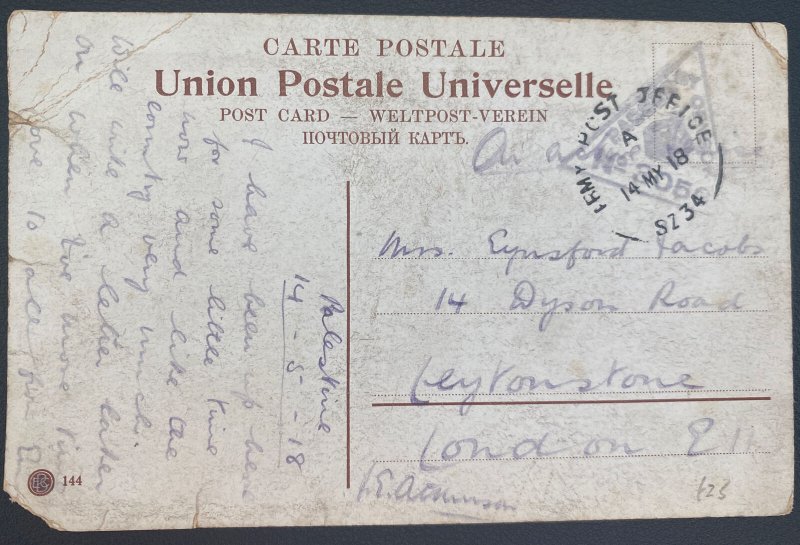 CARTE POSTALE
Union Postale Universelle
POST CARD — WELTPOST-VEREIN
ПОЧТОВЫЙ КАРТЪ.
ARMY POST OFFICE
A
14 MY 18
SZ34
On
Mrs. Eynsford Jacobs
14 Dyson Road
Leytonstone
London E 11
Palestine
14 - 5 - 18
I have been up here
for some little time
now and like the
country very much.
Will write a letter later
on when I've more time
Love to all from
144
£25